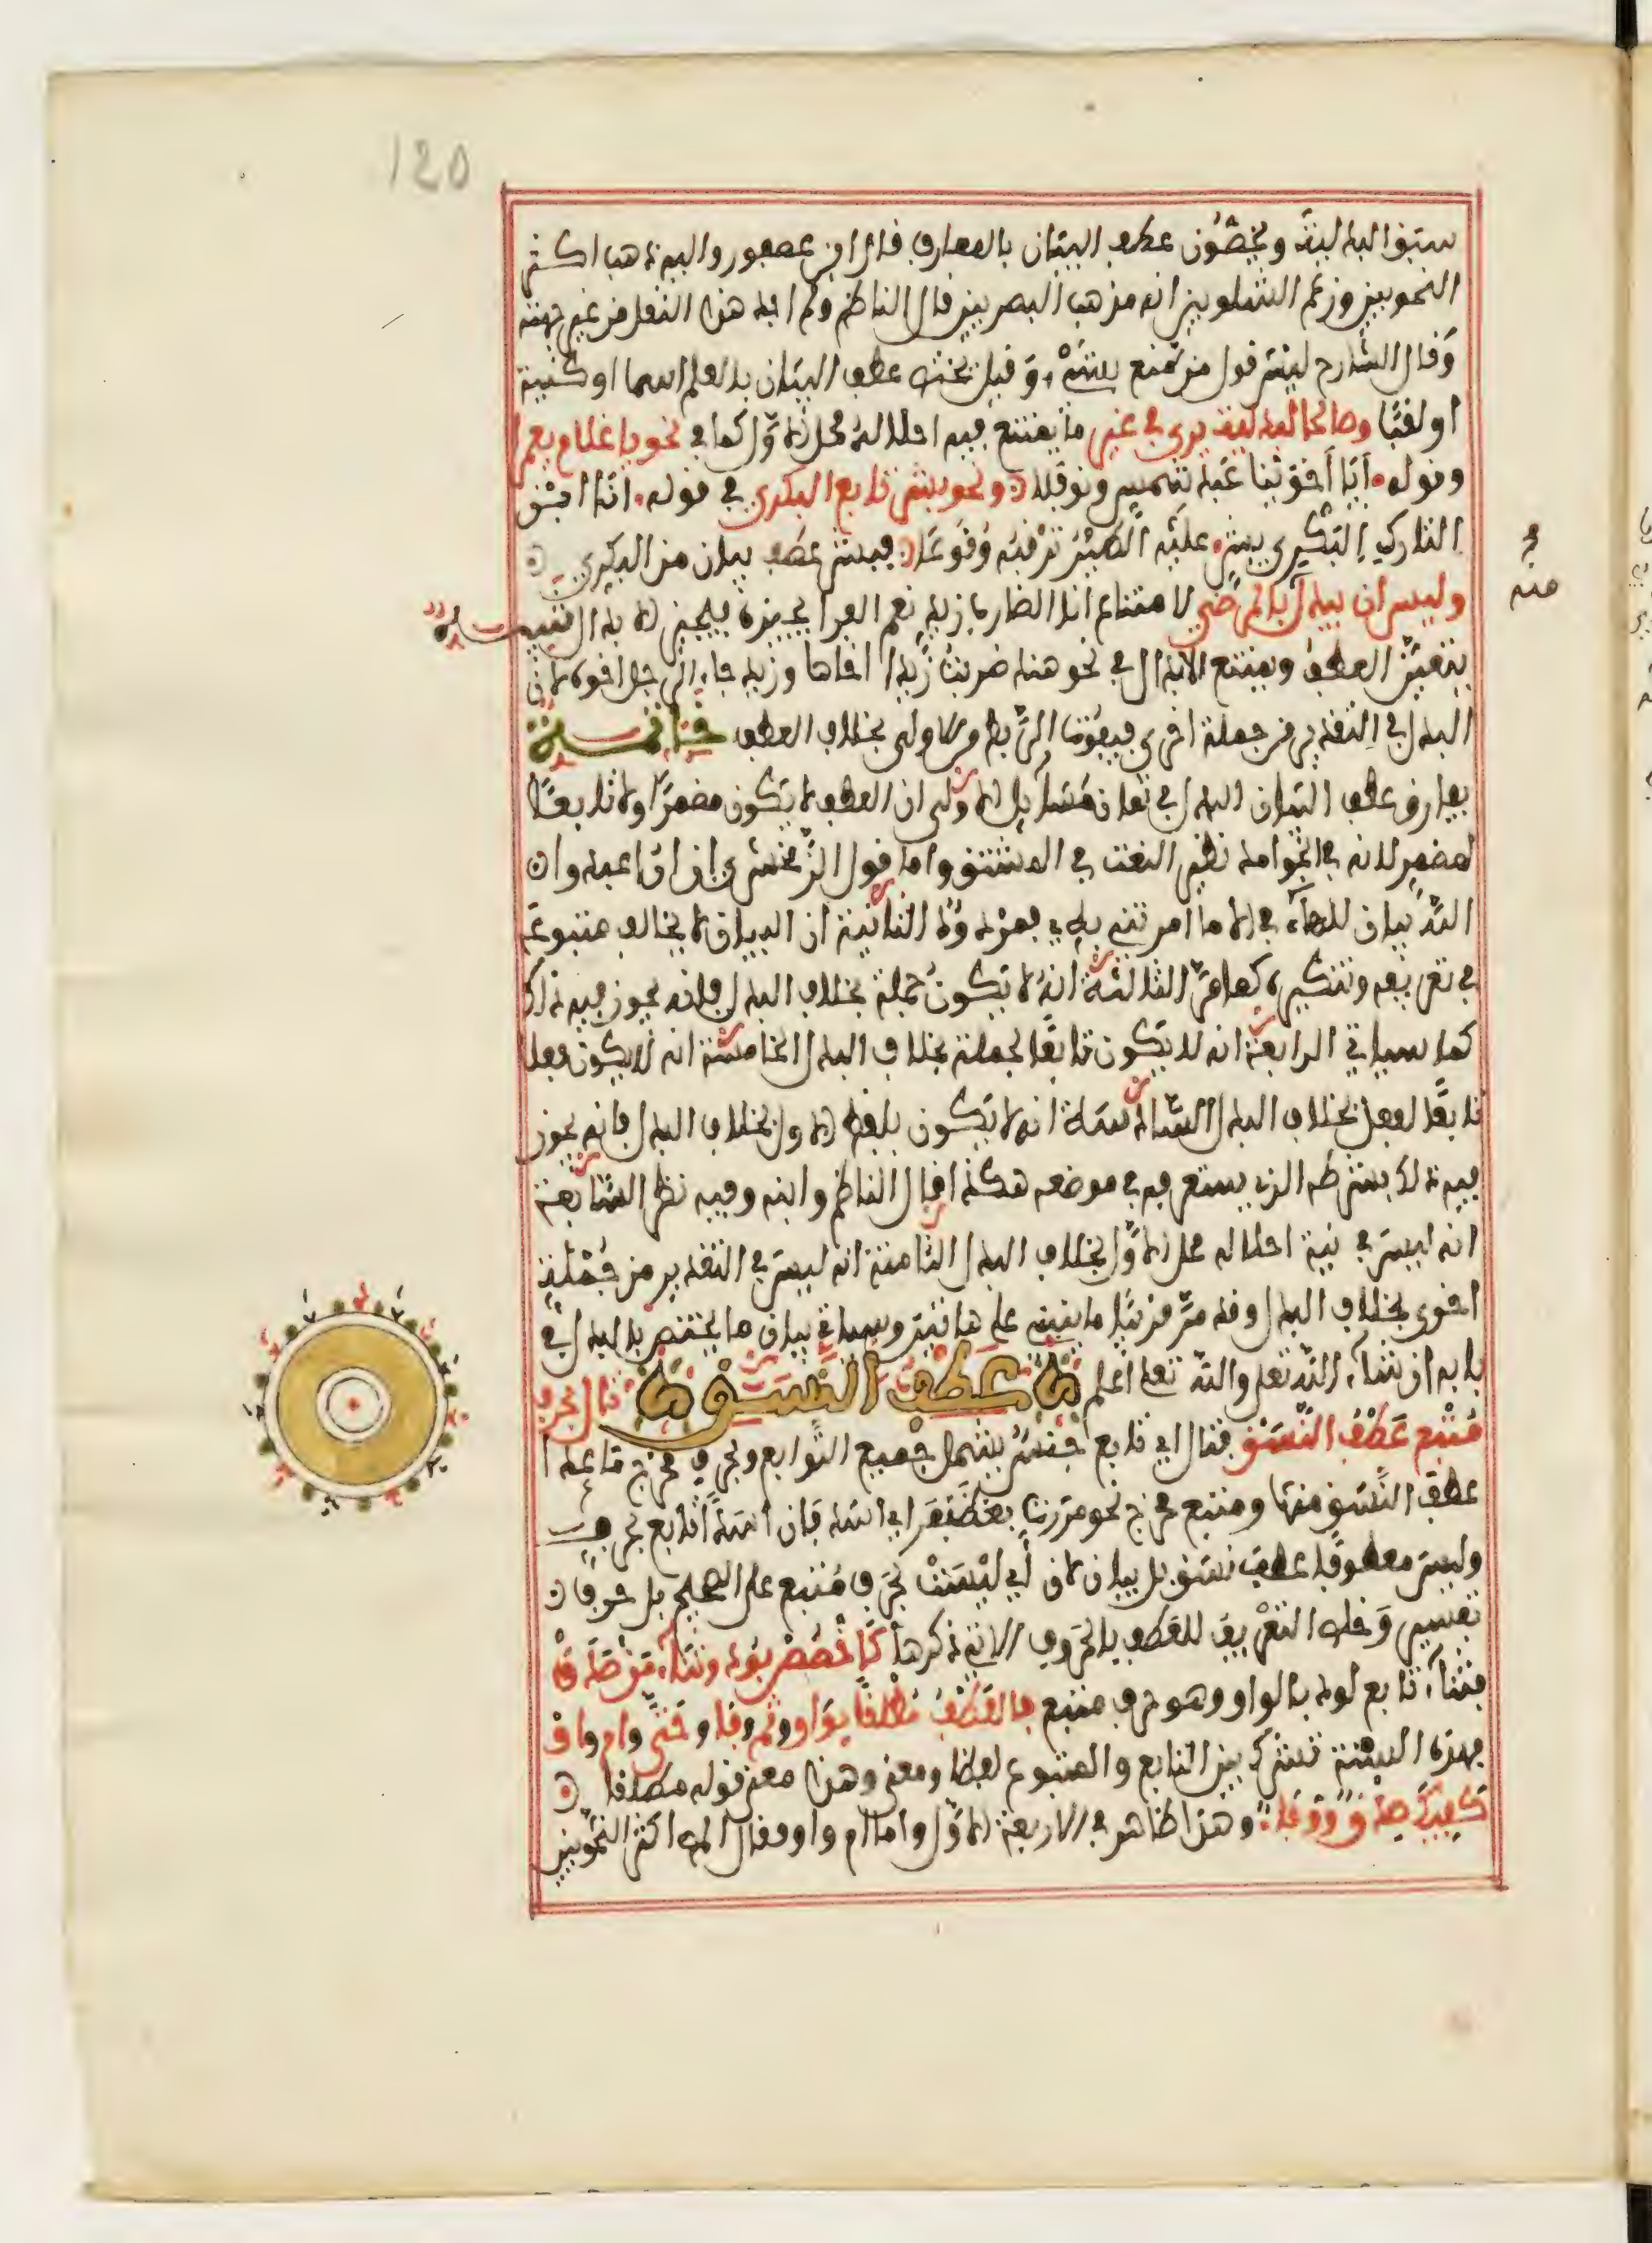 120
سبق البدلية ويخصون عطف البيان بالمعارف قال ابن عصفور واليه ذهب اكثر
النحويين وزعم الشلوبين انه مذهب البصريين قال الناظم ولم اجد هذا النقل من غير جهته
وقال الشارح ليس قول من منع بشيء وقيل يختص عطف البيان بالعلم اسما او كنية
او لقبا وصالحا لبدلية يرى في غير ما يمتنع فيه احلاله محل الاول كما في نحو يا غلام يعمرا
وقوله ايا اخوينا عبد شمس ونوفلا ونحو بشر تابع البكري في قوله انا ابن
التارك البكري بشر عليه الطير ترقبه وقوعا فبشر عطف بيان من البكري
وليس ان يبدل بالمرضي لامتناع انا الضارب زيد نعم الفرا يجيزه فيجيز الابدال تنبيه
يتعين العطف ويمتنع الابدال في نحو هند ضربت زيدا اخاها وزيد جاء الرجل اخوه لان
البدل في التقدير من جملة اخرى فيفوت الربط من الاولى بخلاف العطف خاتمة
يفارق عطف البيان البدل في ثمان مسايل الاولى ان العطف لا يكون مضمرا ولا تابعا
لمضمر لانه في الجوامد نظير النعت في المشتق واما قول الزمخشري ان ان اعبدوا
الله بيان للهاء في الا ما امرتني به فمردود الثانية ان البيان لا يخالف متبوعه
في تعريفه وتنكيره كما مر الثالثة انه لا يكون جملة بخلاف البدل فانه يجوز فيه ذلك
كما سياتي الرابعة انه لا يكون تابعا لجملة بخلاف البدل الخامسة انه لا يكون فعلا
تابعا لفعل بخلاف البدل السادسة انه لا يكون بلفظ الاول بخلاف البدل فانه يجوز
فيه ذلك بشرطه الذي ستعرفه في موضعه هكذا قال الناظم وابنه وفيه نظر السابعة
انه ليس في نية احلاله محل الاول بخلاف البدل الثامنة انه ليس في التقدير من جملة
اخرى بخلاف البدل وقد مر قريبا ما ينبني على هاتين وسياتي بيان ما يختص بالبدل في
بابه ان شاء الله تعلى والله تعلى اعلم عطف النسق تال بحرف
متبع عطف النسق فتال اي تابع جنس يشمل جميع التوابع وبحرف مخرج ما عدا
عطف النسق منها ومتبع مخرج نحو مررت بغضنفر اي اسد فان اسدا تابع بحرف
وليس معطوفا عطف نسق بل بيان لان اي ليست بحرف متبع على الصحيح بل حرف
تفسير وخلص التعريف للعطف بالحروف الاتي ذكرها كاخصص بود وثناء من صدق
فثناء تابع لود بالواو وهو حرف متبع فالعطف مطلقا بواو وثم وفا وحتى وام واو
فهذه الستة تشرك بين التابع والمتبوع لفظا ومعنى وهذا معنى قوله مطلقا
كفيك صدق ووفا وهذا ظاهر في الاربعة الاول واما ام واو فقال اكثر النحويين
منه